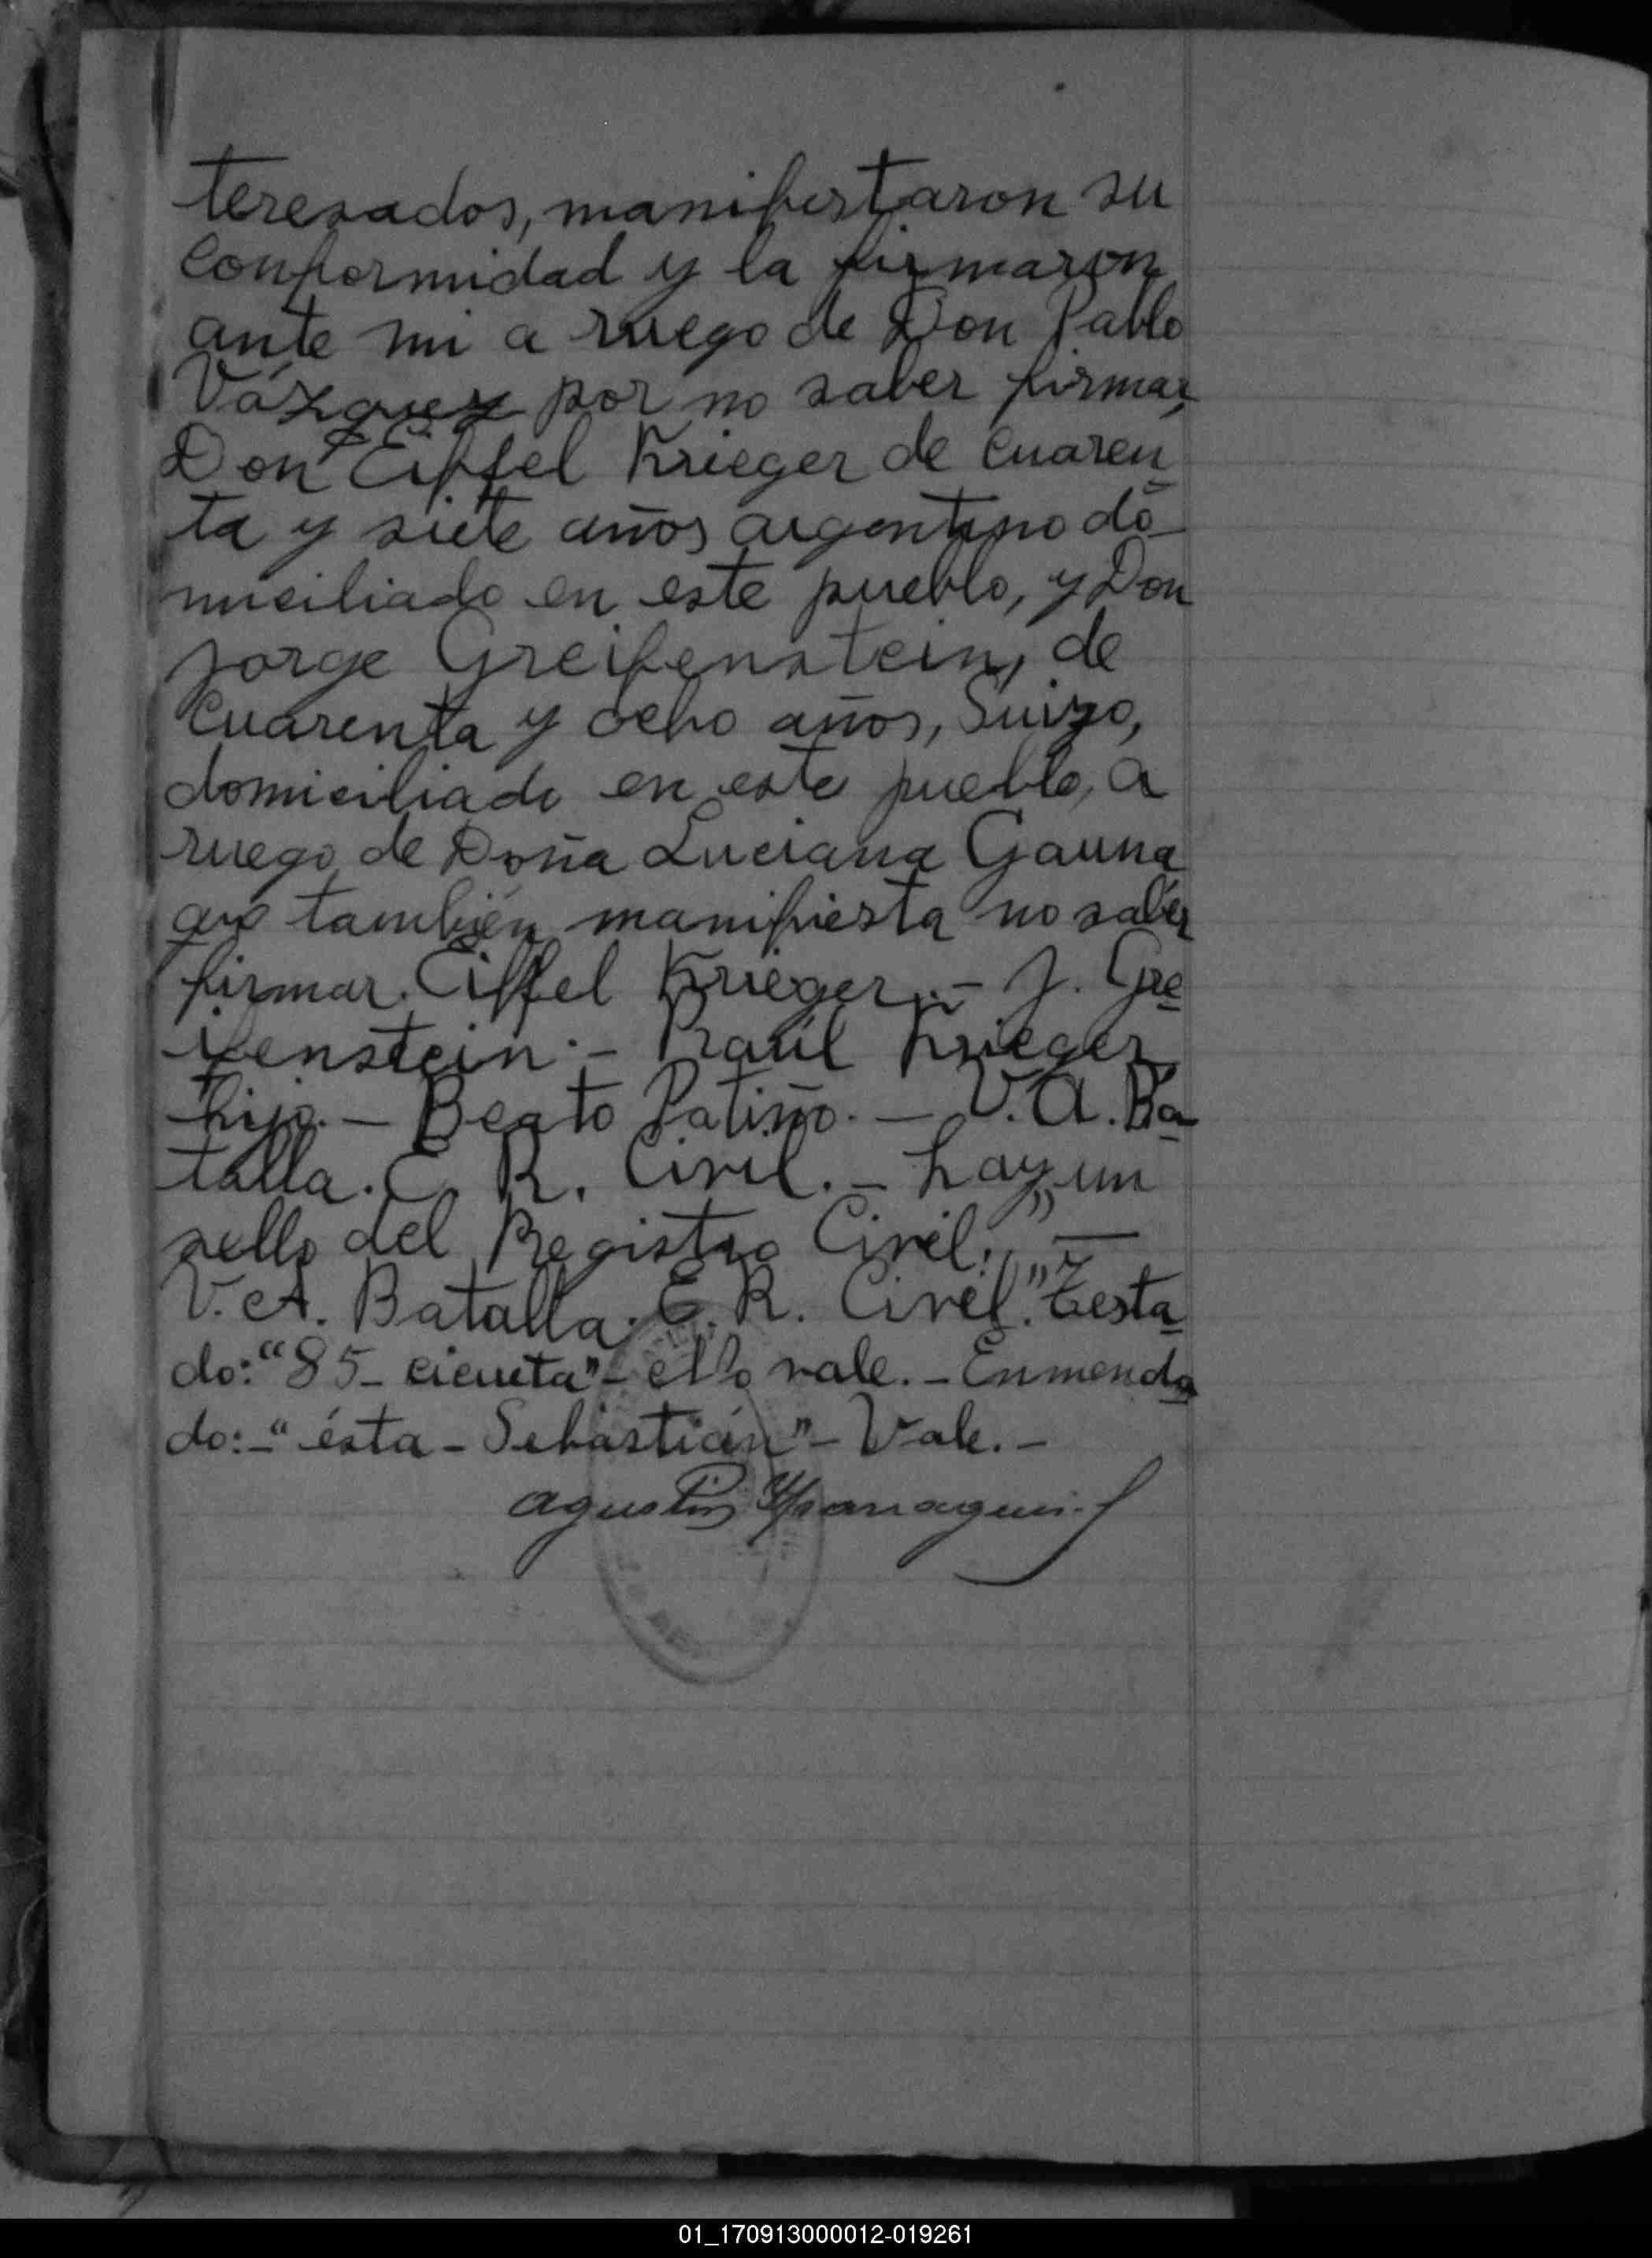 teresados, manifestaron su
conformidad y la firmaron
ante mi a ruego de Don Pablo
Vázquez por no saber firmar,
Don Eiffel Krieger de cuaren
ta y siete años argentino do
miciliado en este pueblo, y Don
Jorge Greifenstein, de
cuarenta y ocho años, Suizo,
domiciliado en este pueblo, a
ruego de Doña Luciana Gauna
que también manifiesta no saber
firmar. Eiffel Krieger.- J. Gre
ifenstein.- Raúl Krieger
hijo.- Beato Patiño.- V. A. Ba
talla. E. R. Civil.- hay un
sello del Registro Civil."-
V. A. Batalla. E. R. Civil." Testa
do: "85- cicueta"- No vale.- Enmenda
do:- "ésta- Sebastián"- Vale.-
Agustín
01_170913000012-019261